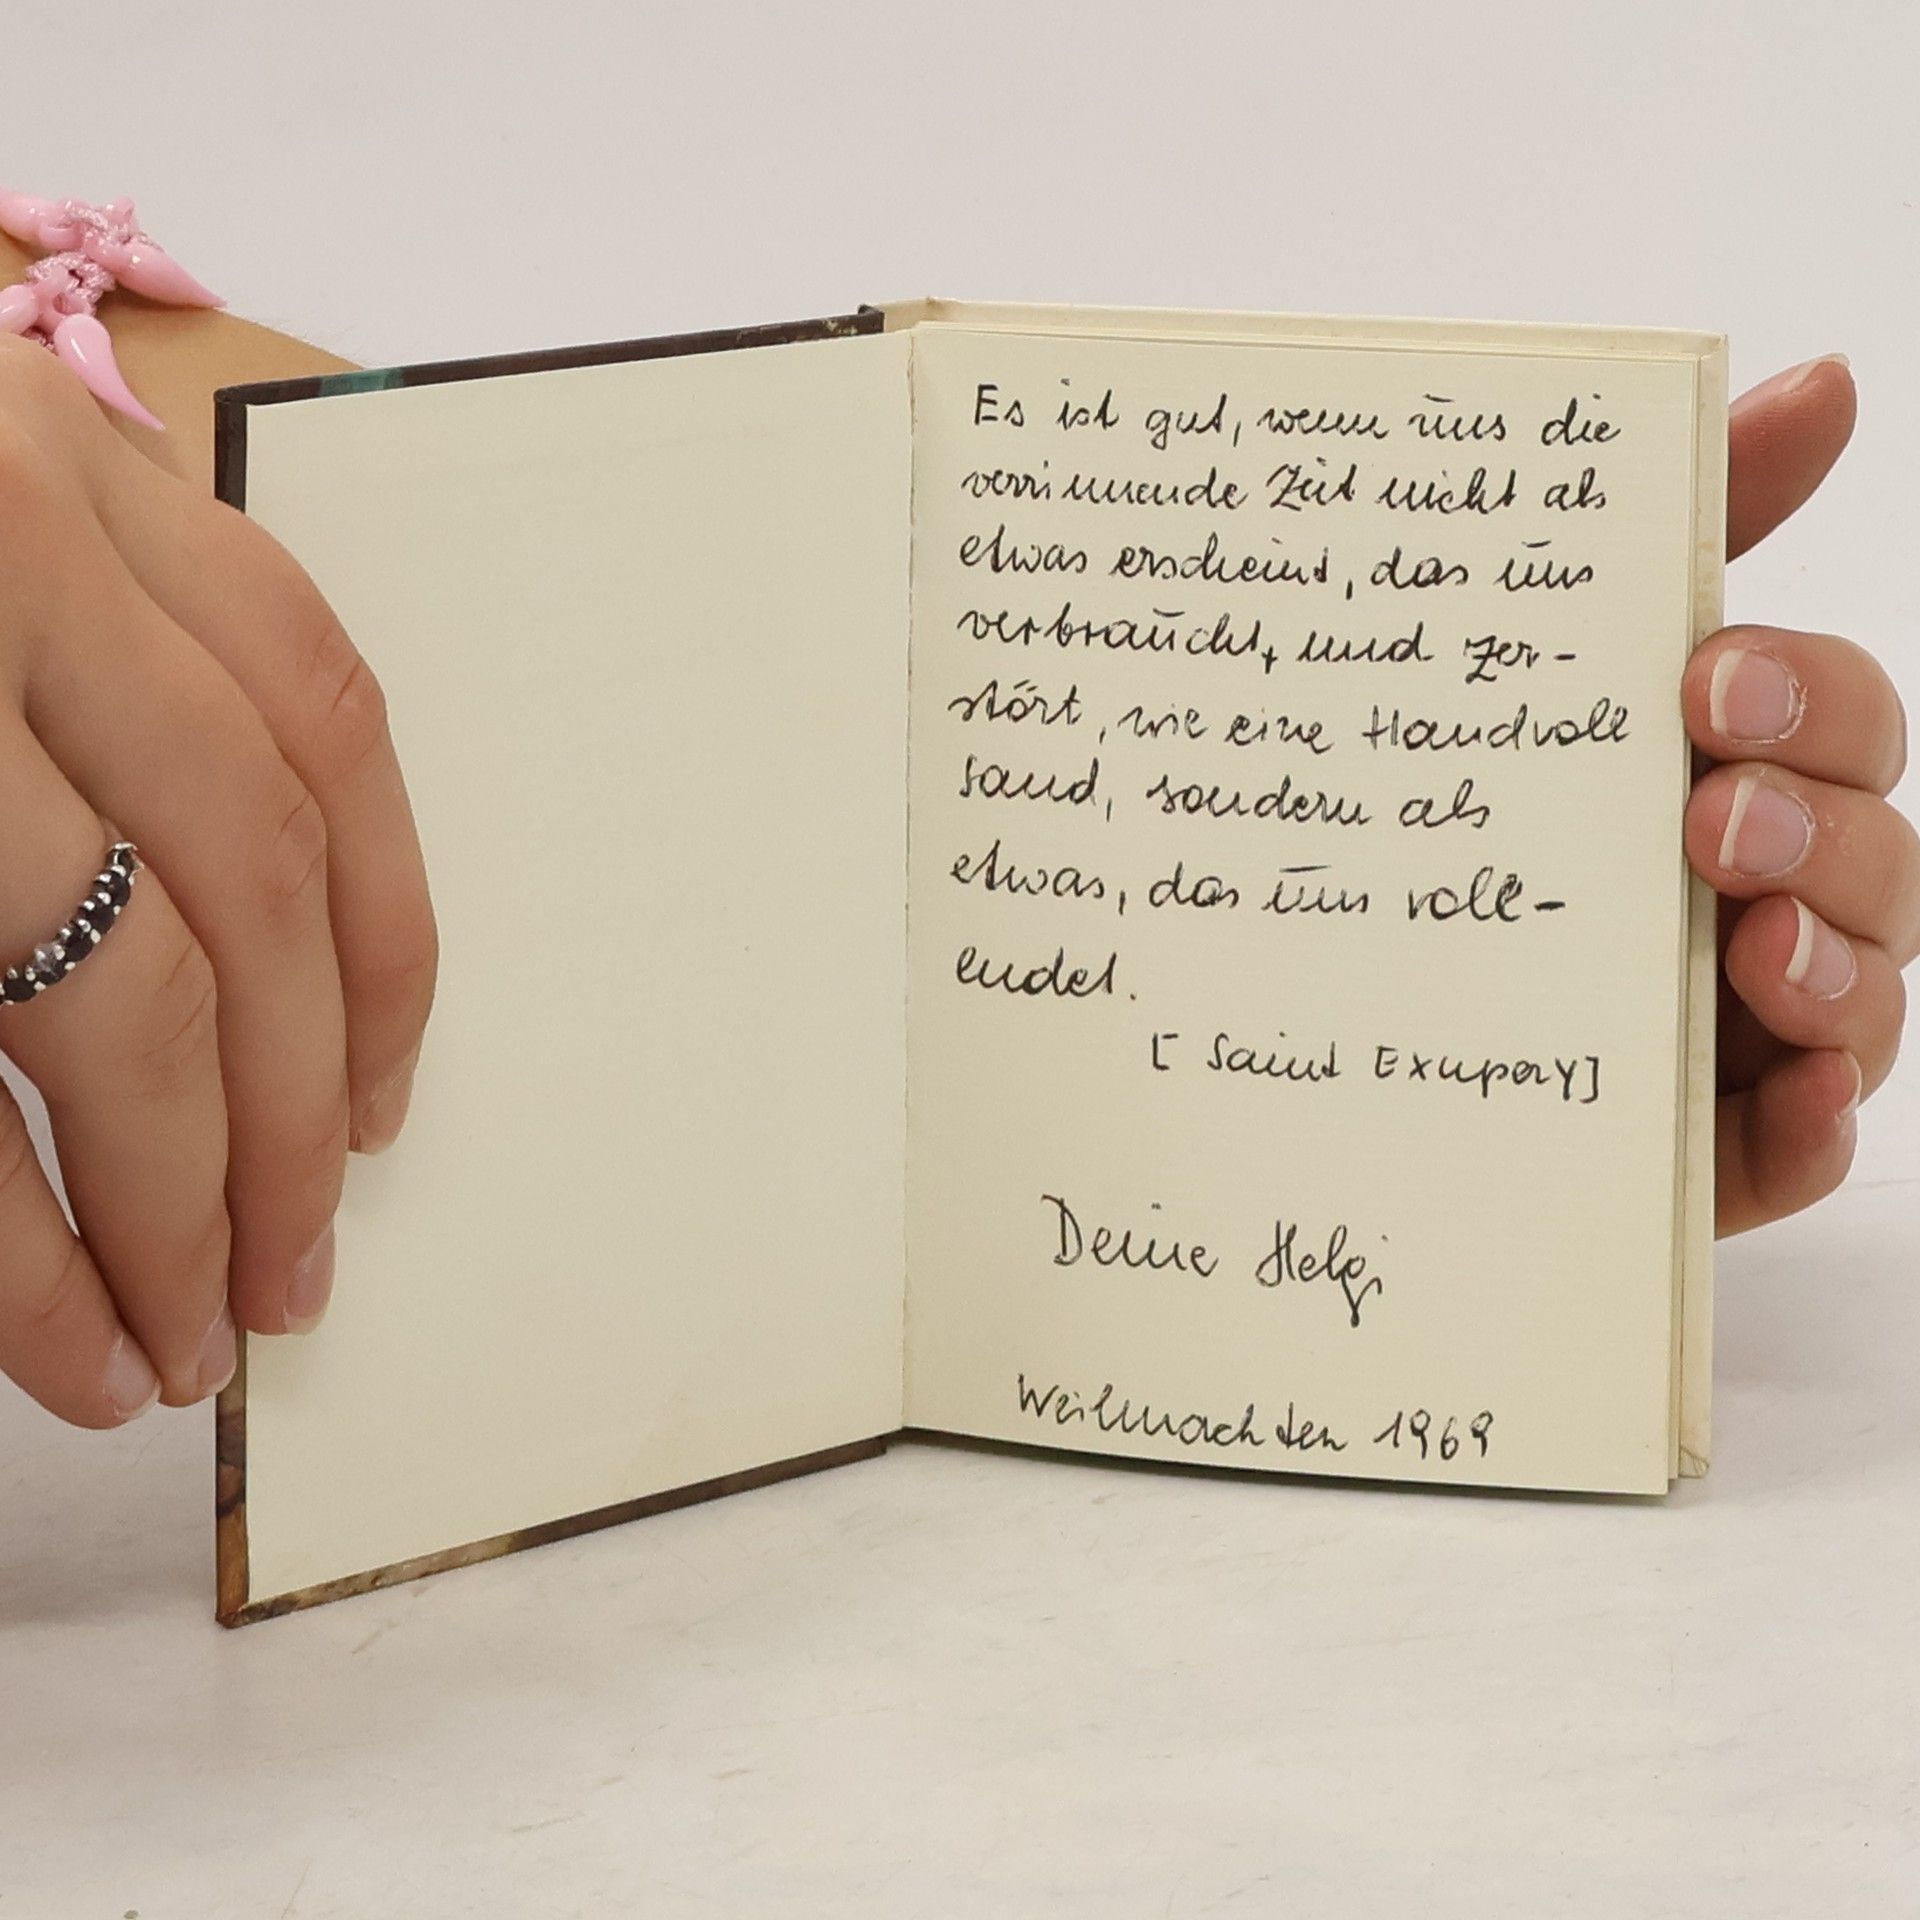 Es ist gut, wenn uns die
verrinnende Zeit nicht als
etwas erscheint, das uns
verbraucht, und zer-
stört, wie eine Handvoll
Sand, sondern als
etwas, das uns voll-
endet.
[Saint Exupery]
Deine Helgi
Weihnachten 1969